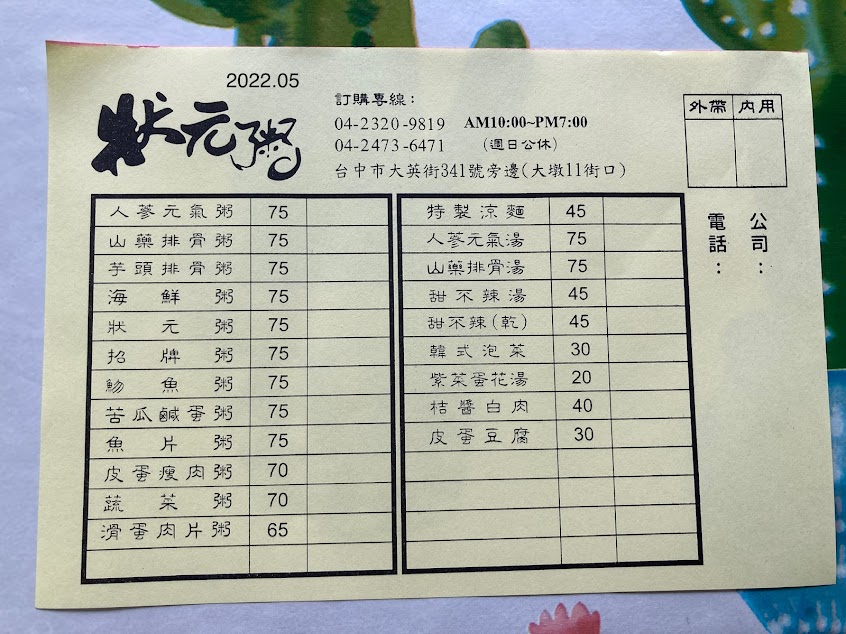 2022.05
狀元粥
訂購專線：
04-2320-9819 AM10:00~PM7:00
04-2473-6471 (週日公休)
台中市大英街341號旁邊(大墩11街口)
外帶 內用
公司：
電話：
人蔘元氣粥 75
山藥排骨粥 75
芋頭排骨粥 75
海鮮粥 75
狀元粥 75
招牌粥 75
魩魚粥 75
苦瓜鹹蛋粥 75
魚片粥 75
皮蛋瘦肉粥 70
蔬菜粥 70
滑蛋肉片粥 65
特製涼麵 45
人蔘元氣湯 75
山藥排骨湯 75
甜不辣湯 45
甜不辣(乾) 45
韓式泡菜 30
紫菜蛋花湯 20
桔醬白肉 40
皮蛋豆腐 30